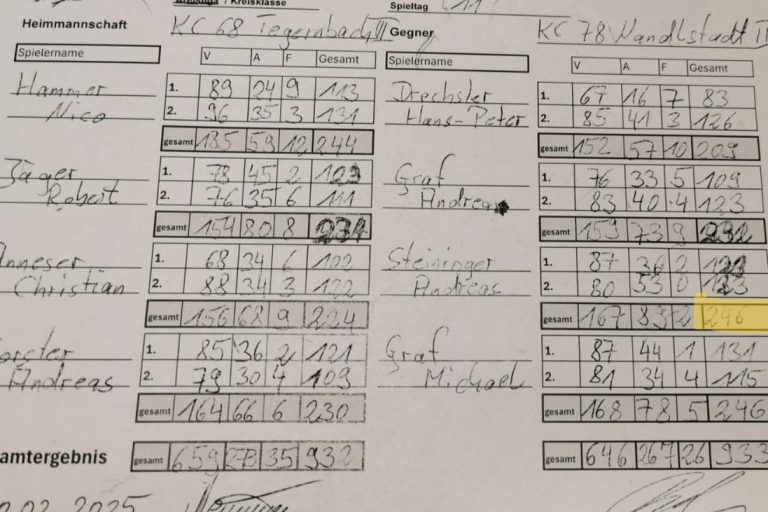 / Kreisklasse Spieltag 11
Heimmannschaft KC 68 Tegernbach III Gegner KC 78 Wandlstadt II
Spielername V A F Gesamt Spielername V A F Gesamt
Hammer 1. 89 24 9 113 Drechsler 1. 67 16 7 83
Nico 2. 96 35 3 131 Hans-Peter 2. 85 41 3 126
gesamt 185 59 12 244 gesamt 152 57 10 209
Jäger 1. 78 45 2 123 Graf 1. 76 33 5 109
Robert 2. 76 35 6 111 Andreas 2. 83 40 4 123
gesamt 154 80 8 234 gesamt 159 73 9 232
nneser 1. 68 34 6 102 Steininger 1. 87 36 2 123
Christian 2. 88 34 3 122 Andreas 2. 80 53 0 123
gesamt 156 68 9 224 gesamt 167 83 2 246
orster 1. 85 36 2 121 Graf 1. 87 44 1 131
Andreas 2. 79 30 4 109 Michael 2. 81 34 4 115
gesamt 164 66 6 230 gesamt 168 78 5 246
amtergebnis gesamt 659 273 35 932 gesamt 646 267 26 933
.02.2025